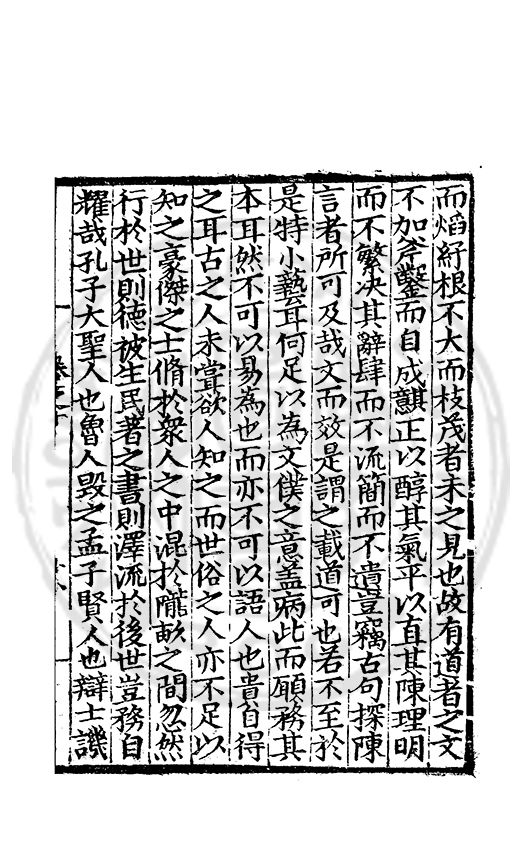 而焰紓根不大而枝茂者未之見也故有道者之文
不加斧鑿而自成其正以醇其氣平以直其陳理明
而不繁决其辭肆而不流簡而不遺豈竊古句探陳
言者所可及哉文而效是謂之載道可也若不至於
是特小藝耳何足以為文僕之意盖病此而願務其
本耳然不可以易為也而亦不可以語人也貴自得
之耳古之人未甞欲人知之而世俗之人亦不足以
知之豪傑之士脩於衆人之中混於隴畝之間忽然
行於世則德被生民著之書則澤流於後世豈務自
耀哉孔子大聖人也魯人毀之孟子賢人也辯士譏